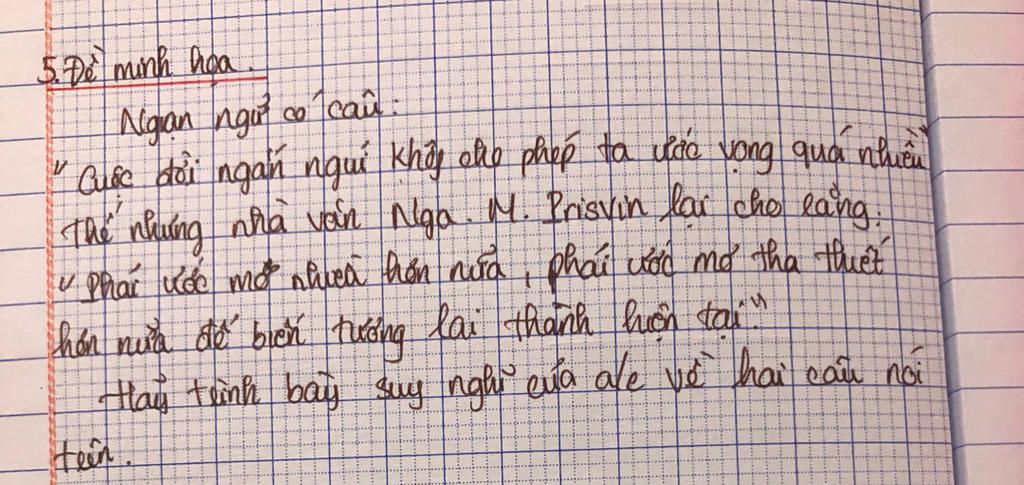 5. Đề minh họa.
Ngạn ngữ có câu:
"Cuộc đời ngắn ngủi không cho phép ta ước vọng quá nhiều"
Thế nhưng nhà văn Nga. M. Prisvin lại cho rằng:
"Phải ước mơ nhiều hơn nữa, phải ước mơ tha thiết
hơn nữa để biến tương lai thành hiện tại."
Hãy trình bày suy nghĩ của a/c về hai câu nói
trên.